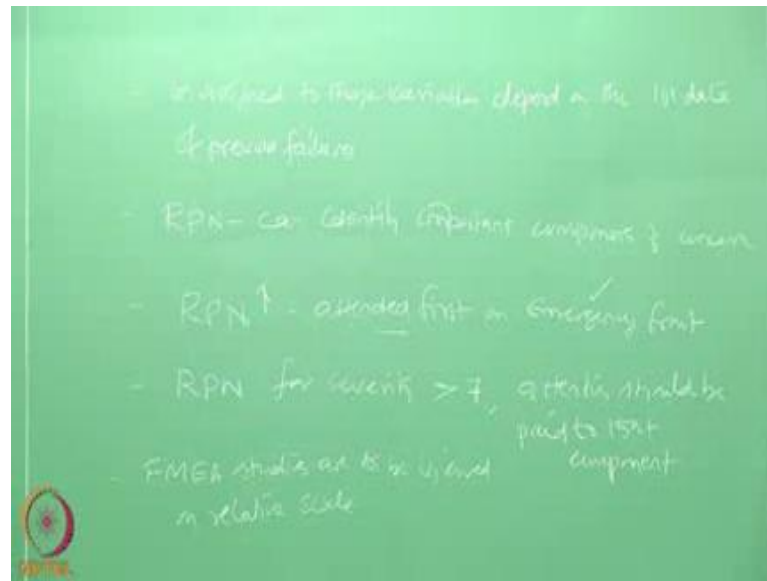 - assigned to those depend on the 1st date
of previous failure
- RPN - can identify important components & concern
- RPN ↑ - attended first on emergency front
- RPN for severity > 7, attention should be
paid to 15nt
component
- FMEA studies are to be viewed
on relative scale
NPTEL